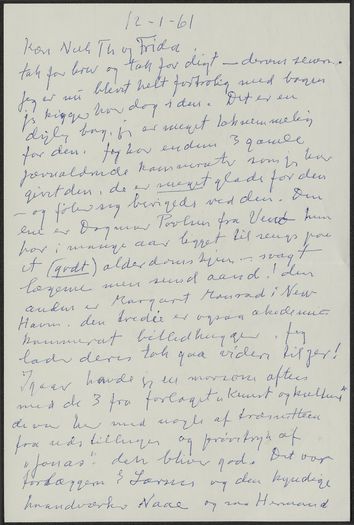 12-1-61
Kære Niels Th og Frida.
tak for brev og tak for digt — derom senere.
Jeg er nu blevet helt fortrolig med bogen
jeg kigger hver dag i den. Det er en
dejlig bog, jeg er meget taknemmelig
for den. Jeg har endnu 3 gamle
jævnaldrende kammerater som jeg har
givet den, de er meget glade for den
— og føler sig beriget ved den. Den
ene er Dagmar Poulsen fra hun
har i mange aar ligget til sengs paa
et (godt) alderdomshjem — svagt
legeme men sund aand! den
anden er Margart i New
Haven. den tredie er ogsaa akademi-
kammerat billedhugger. Jeg
lader deres tak gaa videre til jer!
Igaar havde jeg en morsom aften
med de 3 fra forlaget "Kunst og Kultur"
de var her med nogle af træsnittene
fra udstillingen og prøvetryk af
"Jonas". den bliver god. Det var
Larsen og den kyndige
haandværker og saa Hermand